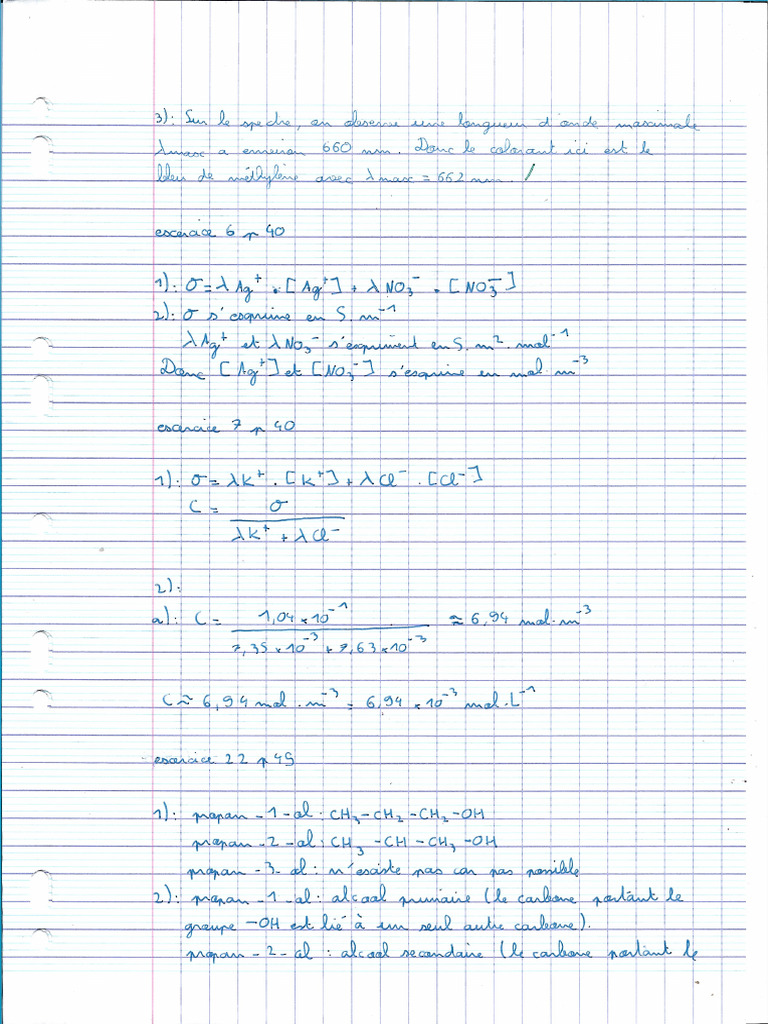 3): Sur le spectre, on observe une longueur d'onde maximale
λmax a environ 660 nm. Donc le colorant ici est le
bleu de méthylène avec λmax = 662 nm. /
exercice 6 p 40
1): σ = λAg⁺ . [Ag⁺] + λNO₃⁻ . [NO₃⁻]
2): σ s'exprime en S.m⁻¹
λAg⁺ et λNO₃⁻ s'expriment en S.m².mol⁻¹
Donc [Ag⁺] et [NO₃⁻] s'exprime en mol.m⁻³
exercice 7 p 40
1): σ = λK⁺ . [K⁺] + λCl⁻ . [Cl⁻]
C = σ
λK⁺ + λCl⁻
2):
a): C = 1,04 × 10⁻¹ ≈ 6,94 mol.m⁻³
7,35 × 10⁻³ + 7,63 × 10⁻³
C ≈ 6,94 mol.m⁻³ = 6,94 × 10⁻³ mol.L⁻¹
exercice 22 p 45
1): propan-1-ol : CH₃-CH₂-CH₂-OH
propan-2-ol : CH₃-CH-CH₃-OH
propan-3-ol : n'existe pas car pas possible
2): propan-1-ol : alcool primaire (le carbone portant le
groupe -OH est lié à un seul autre carbone).
propan-2-ol : alcool secondaire (le carbone portant le